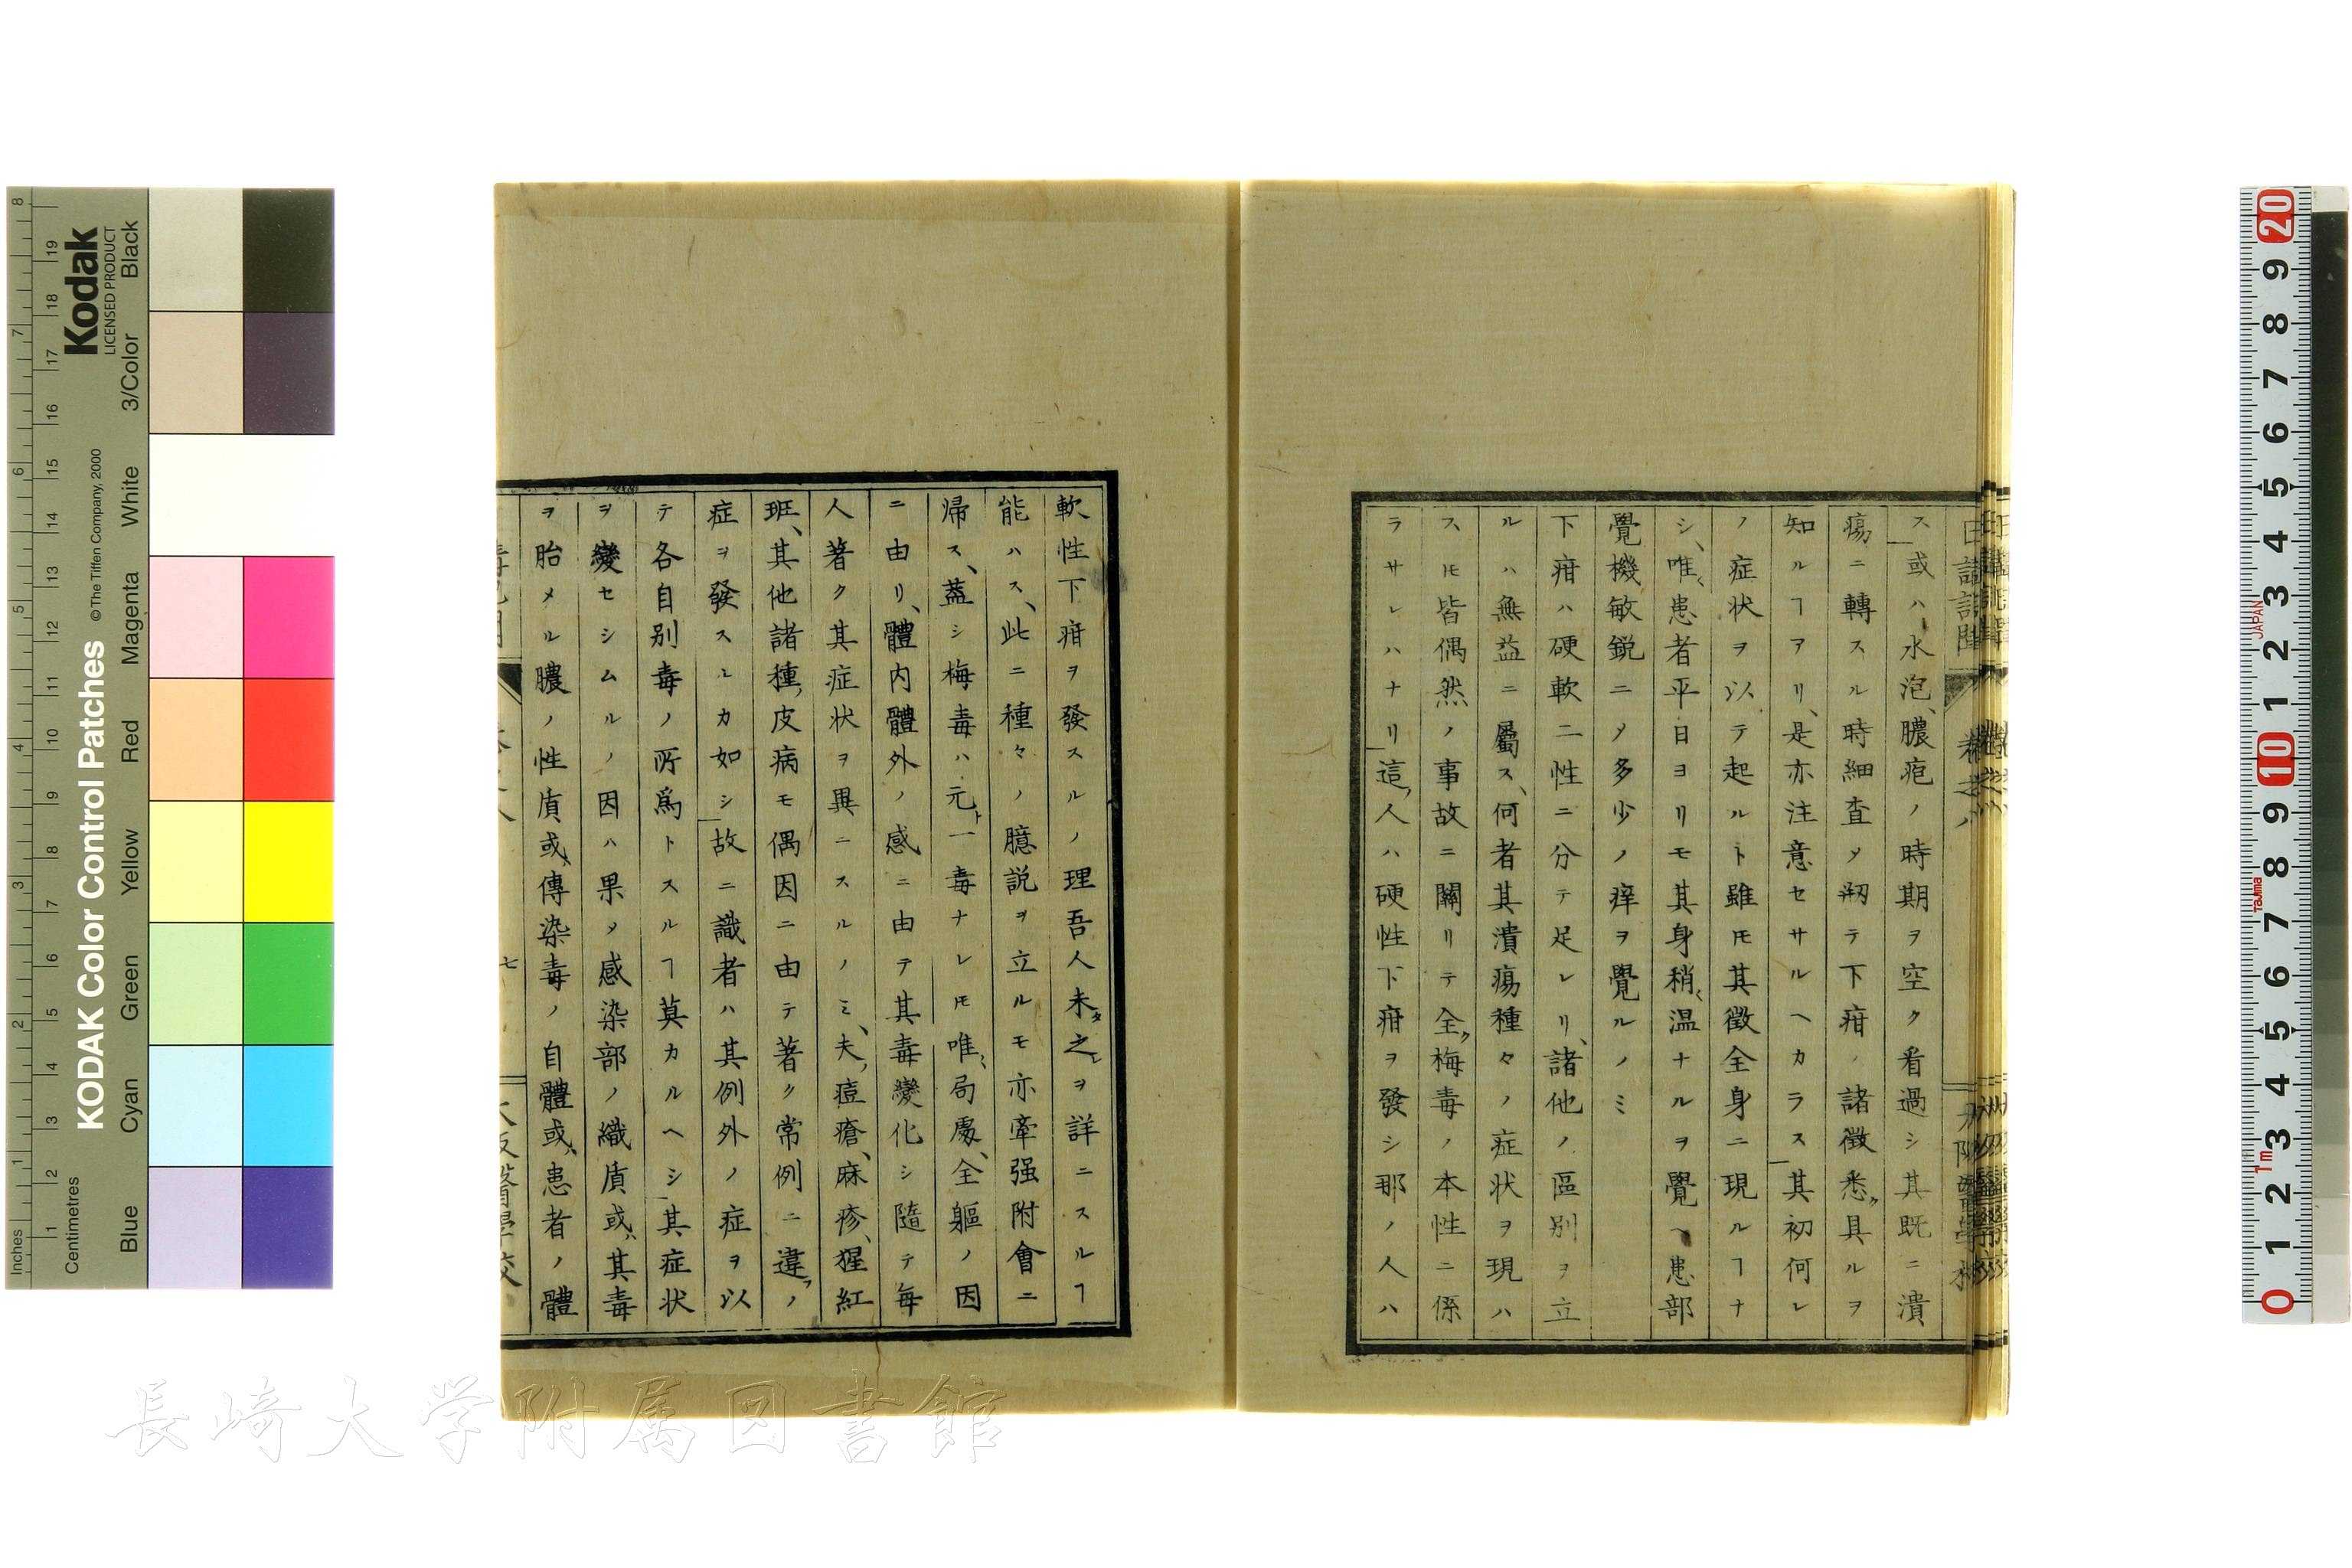 ス或ハ水泡、膿疱ノ時期ヲ空ク看過シ其既ニ潰
瘍ニ轉スル時細査〆剏テ下疳ノ諸徴悉ク具ルヲ
知ルヿアリ、是亦注意セサルヘカラス其初何レ
ノ症状ヲ以テ起ルト雖モ其徴全身ニ現ルヿナ
シ、唯患者平日ヨリモ其身稍温ナルヲ覺ヘ患部
覺機敏鋭ニ〆多少ノ痒ヲ覺ルノミ
下疳ハ硬軟二性ニ分テ足レリ、諸他ノ區別ヲ立
ルハ無益ニ屬ス、何者其潰瘍種々ノ症状ヲ現ハ
スモ皆偶然ノ事故ニ關リテ全ク梅毒ノ本性ニ係
ラサレハナリ這人ハ硬性下疳ヲ發シ那ノ人ハ
軟性下疳ヲ發スルノ理吾人未タ之ヲ詳ニスルヿ
能ハス、此ニ種々ノ臆説ヲ立ルモ亦牽强附會ニ
帰ス、蓋シ梅毒ハ元ト一毒ナレモ唯局處、全軀ノ因
ニ由リ、體内體外ノ感ニ由テ其毒變化シ隨テ毎
人著ク其症状ヲ異ニスルノミ、夫痘瘡、麻疹、猩紅
斑、其他諸種皮病モ偶因ニ由テ著ク常例ニ違フノ
症ヲ發スルカ如シ故ニ識者ハ其例外ノ症ヲ以
テ各自別毒ノ所爲トスルヿ莫カルヘシ其症状
ヲ變セシムルノ因ハ果〆感染部ノ織質或其毒
ヲ胎メル膿ノ性質或傳染毒ノ自體或患者ノ體
七
KODAK Color Control Patches
©The Tiffen Company, 2000
Kodak
LICENSED PRODUCT
Inches
Centimetres
Blue Cyan Green Yellow Red Magenta White 3/Color Black
JAPAN
Tajima
1m
長崎大学附属図書館